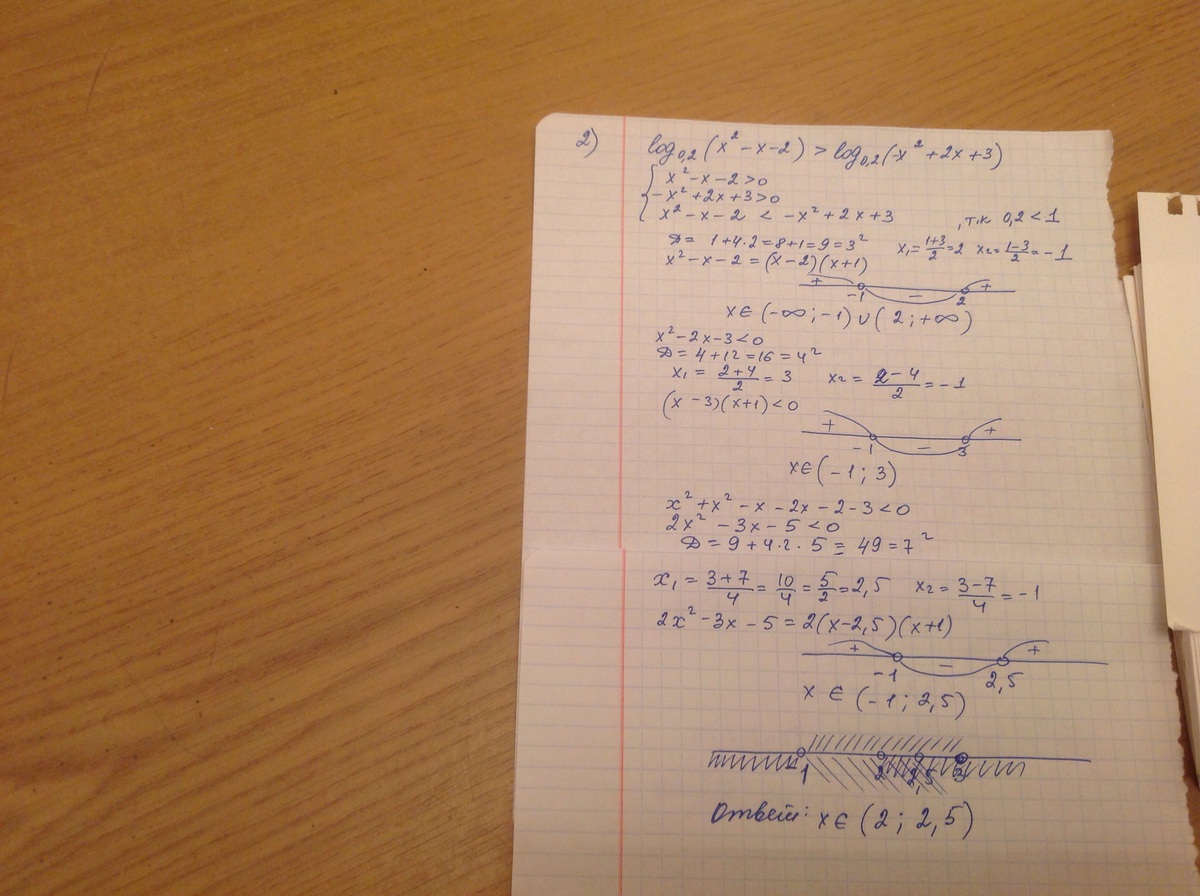 2) log₀,₂(x² - x - 2) > log₀,₂(-x² + 2x + 3)
{ x² - x - 2 > 0
-x² + 2x + 3 > 0
x² - x - 2 < -x² + 2x + 3 , т.к 0,2 < 1
D = 1 + 4·2 = 8 + 1 = 9 = 3² x₁ = (1+3)/2 = 2 x₂ = (1-3)/2 = -1
x² - x - 2 = (x - 2)(x + 1)
+ - +
-1 2
x ∈ (-∞; -1) ∪ (2; +∞)
x² - 2x - 3 < 0
D = 4 + 12 = 16 = 4²
x₁ = (2+4)/2 = 3 x₂ = (2-4)/2 = -1
(x - 3)(x + 1) < 0
+ - +
-1 3
x ∈ (-1; 3)
x² + x² - x - 2x - 2 - 3 < 0
2x² - 3x - 5 < 0
D = 9 + 4·2·5 = 49 = 7²
x₁ = (3+7)/4 = 10/4 = 5/2 = 2,5 x₂ = (3-7)/4 = -1
2x² - 3x - 5 = 2(x - 2,5)(x + 1)
+ - +
-1 2,5
x ∈ (-1; 2,5)
-1 2 2,5 3
Ответ: x ∈ (2; 2,5)